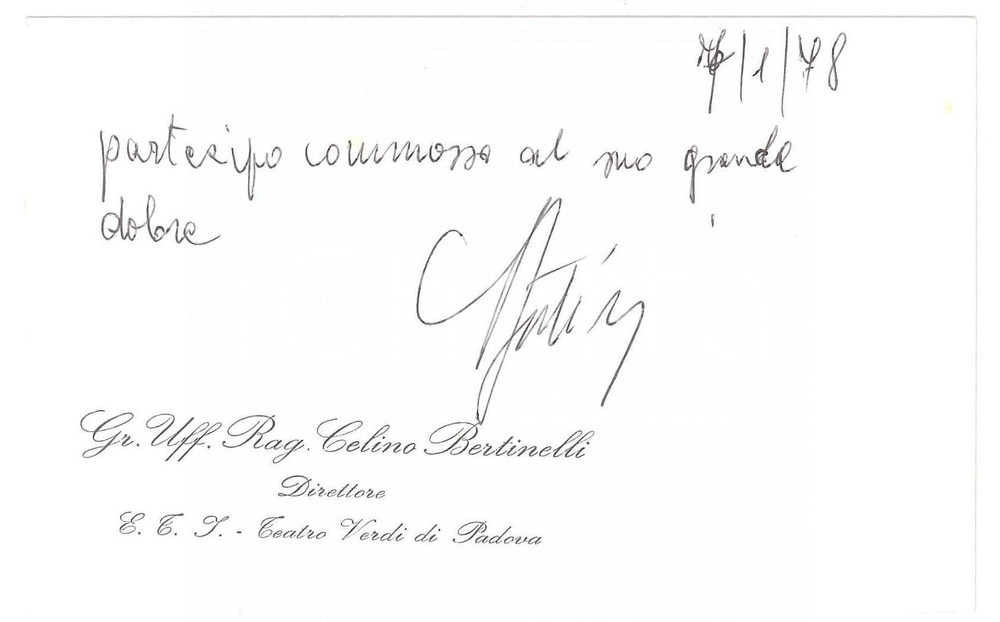 7/1/78
partecipo commosso al suo grande
dolore
Gr. Uff. Rag. Celino Bertinelli
Direttore
E. T. I. - Teatro Verdi di Padova